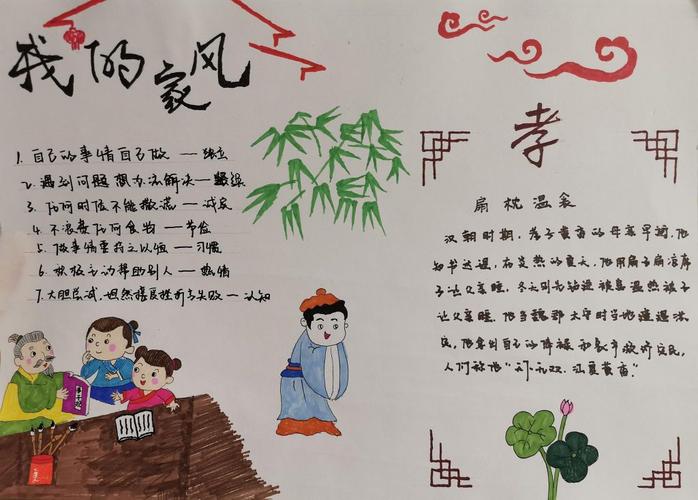 我的家风
1. 自己的事情自己做 — 独立
2. 遇到问题想办法解决 —
3. 任何时候不能撒谎 — 诚实
4. 不浪费任何食物 — 节俭
5. 做事情要持之以恒 — 习惯
6. 积极主动帮助别人 — 热情
7. 大胆尝试,坦然接受挫折与失败 — 认知
孝
扇枕温衾
汉朝时期,孝子黄香的母亲早逝,他
知书达理,在炎热的夏天,他用扇子扇凉席
子让父亲睡,冬天则先钻进被窝温热被子
让父亲睡,他当魏郡太守时当地遭遇洪
灾,他拿出自己的俸禄和家产救济灾民,
人们称他“ 江夏黄香”